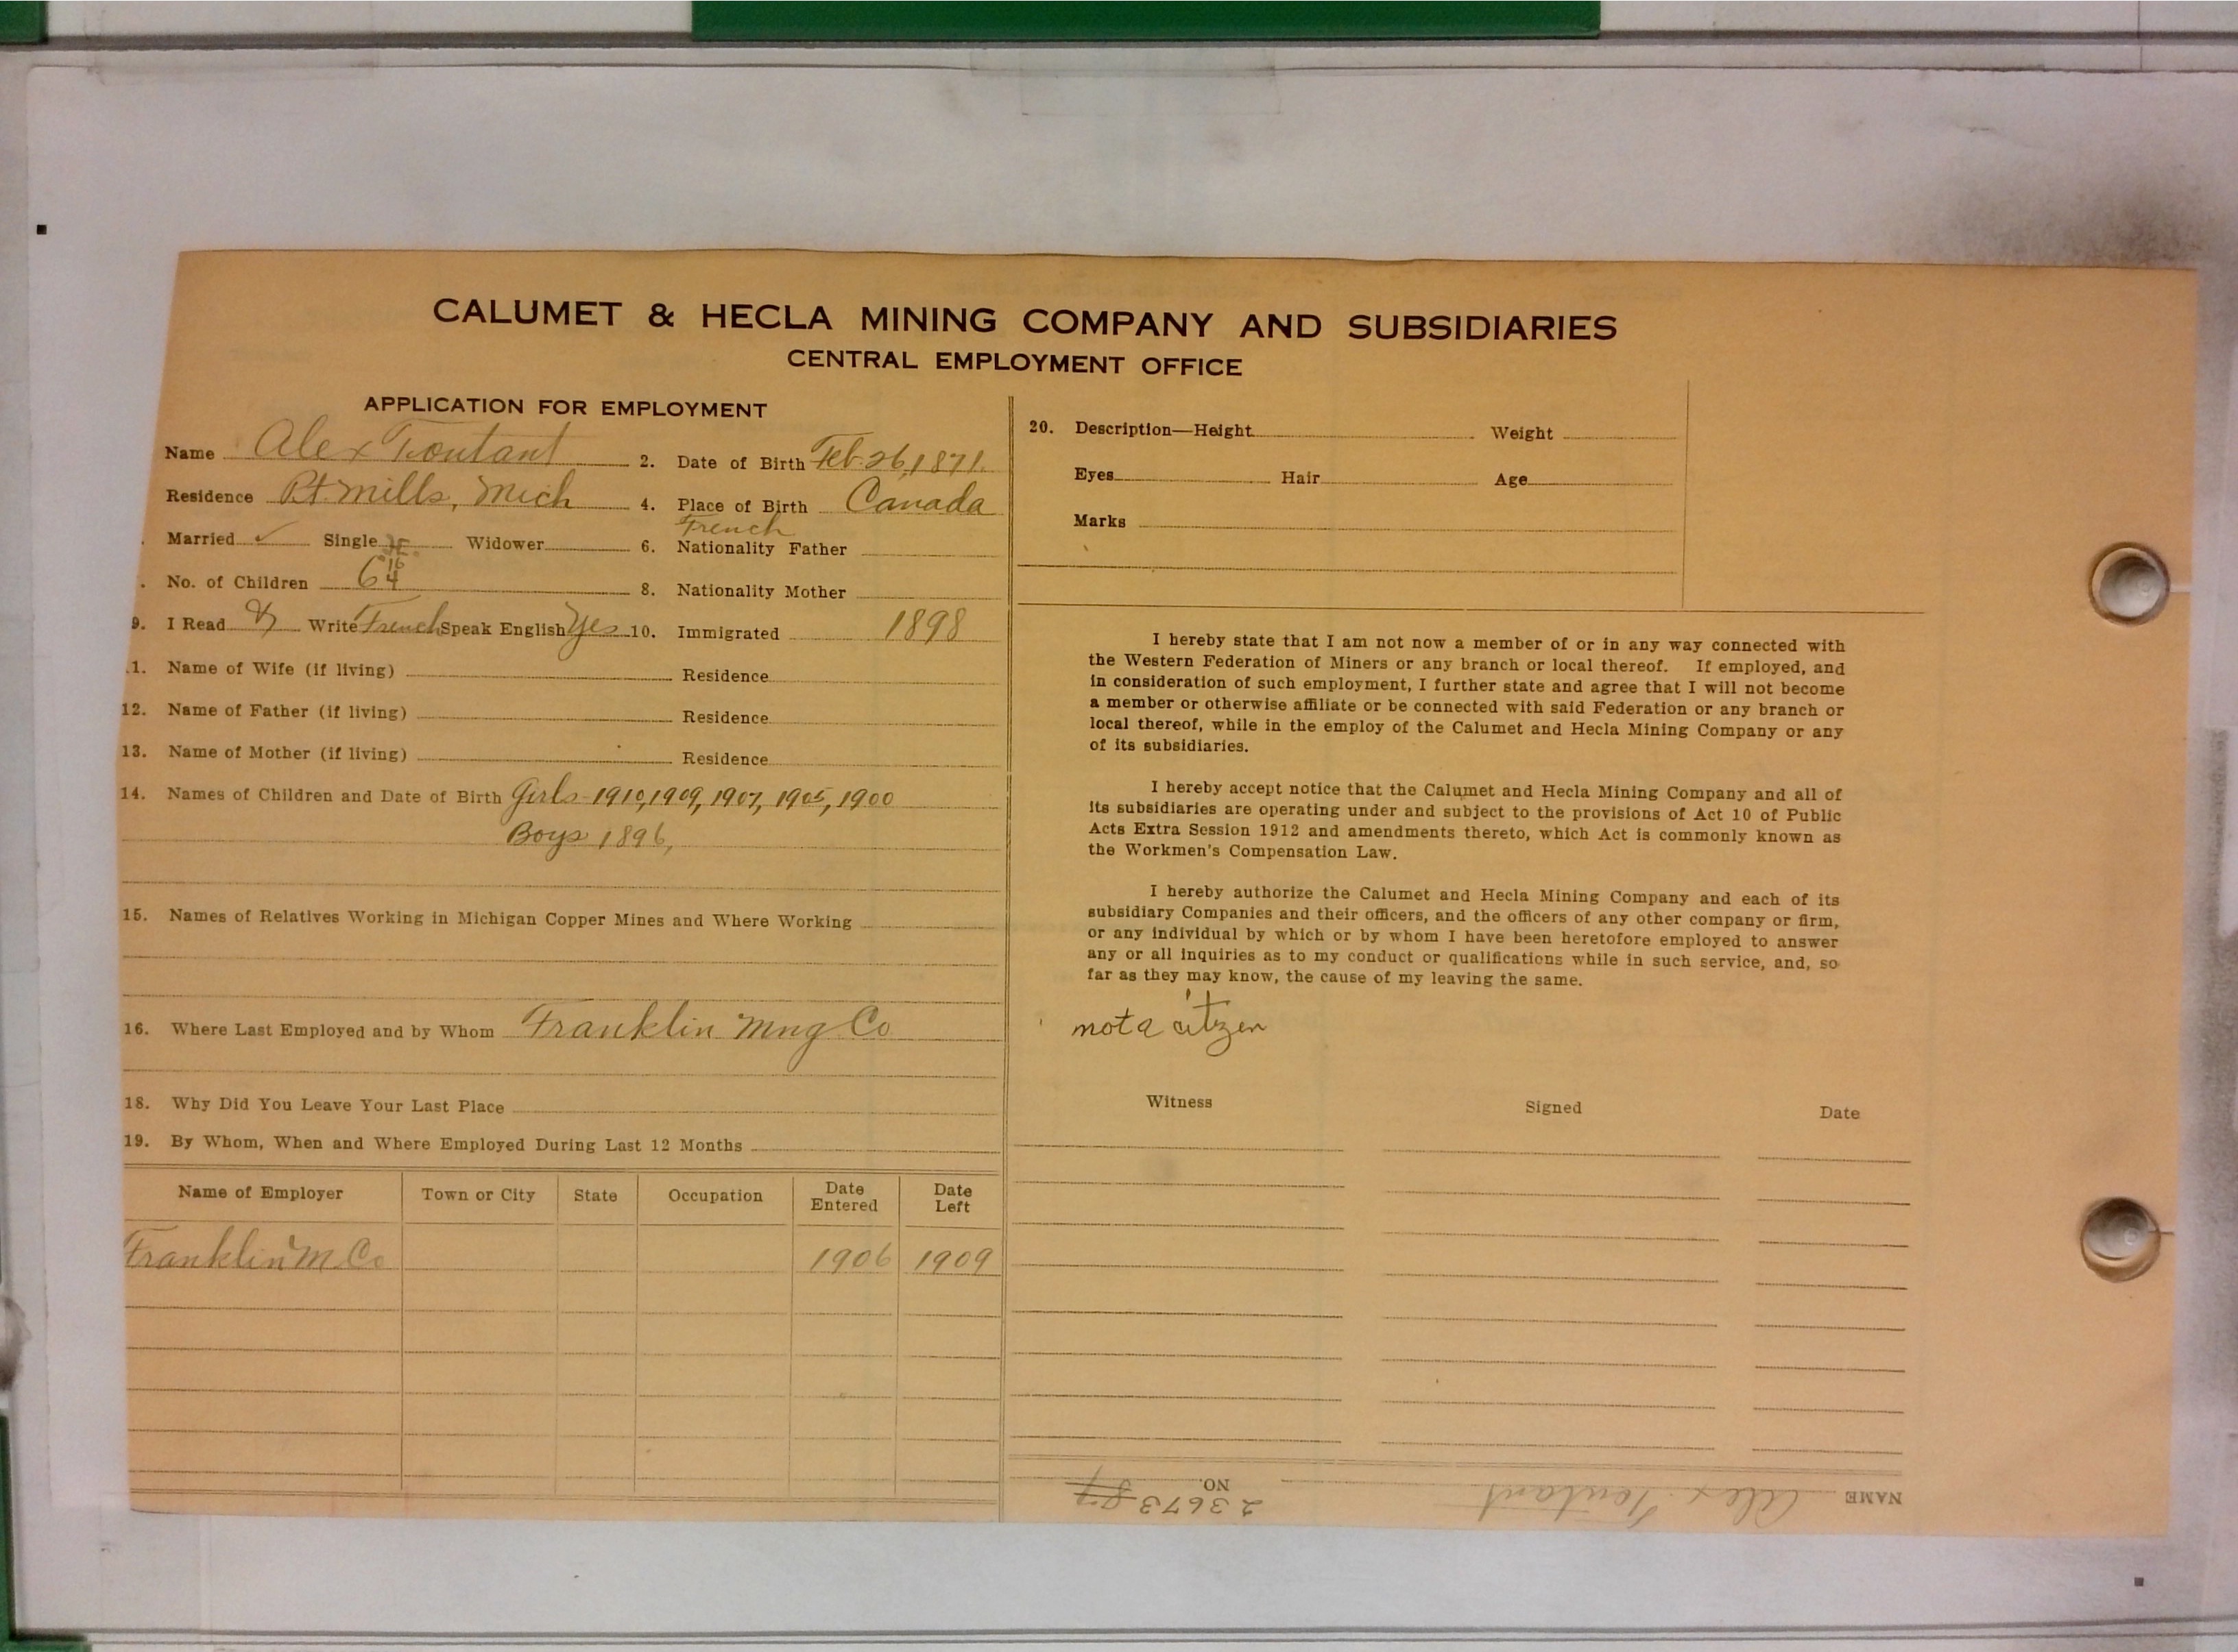 CALUMET & HECLA MINING COMPANY AND SUBSIDIARIES
CENTRAL EMPLOYMENT OFFICE
APPLICATION FOR EMPLOYMENT
Name Alex Toutant 2. Date of Birth Feb. 26, 1871.
Residence Pt. Mills, Mich 4. Place of Birth Canada
French
Married ✓ Single Widower 6. Nationality Father
No. of Children 6 8. Nationality Mother
9. I Read & Write French Speak English Yes 10. Immigrated 1898
1. Name of Wife (if living) Residence
12. Name of Father (if living) Residence
13. Name of Mother (if living) Residence
14. Names of Children and Date of Birth Girls - 1910, 1909, 1907, 1905, 1900
Boys 1896,
15. Names of Relatives Working in Michigan Copper Mines and Where Working
16. Where Last Employed and by Whom Franklin Mng Co
18. Why Did You Leave Your Last Place
19. By Whom, When and Where Employed During Last 12 Months
Name of Employer Town or City State Occupation Date Entered Date Left
Franklin M Co 1906 1909
20. Description—Height Weight
Eyes Hair Age
Marks
I hereby state that I am not now a member of or in any way connected with
the Western Federation of Miners or any branch or local thereof. If employed, and
in consideration of such employment, I further state and agree that I will not become
a member or otherwise affiliate or be connected with said Federation or any branch or
local thereof, while in the employ of the Calumet and Hecla Mining Company or any
of its subsidiaries.
I hereby accept notice that the Calumet and Hecla Mining Company and all of
its subsidiaries are operating under and subject to the provisions of Act 10 of Public
Acts Extra Session 1912 and amendments thereto, which Act is commonly known as
the Workmen's Compensation Law.
I hereby authorize the Calumet and Hecla Mining Company and each of its
subsidiary Companies and their officers, and the officers of any other company or firm,
or any individual by which or by whom I have been heretofore employed to answer
any or all inquiries as to my conduct or qualifications while in such service, and, so
far as they may know, the cause of my leaving the same.
not a citzen
Witness Signed Date
NAME Alex Toutant NO. 23673